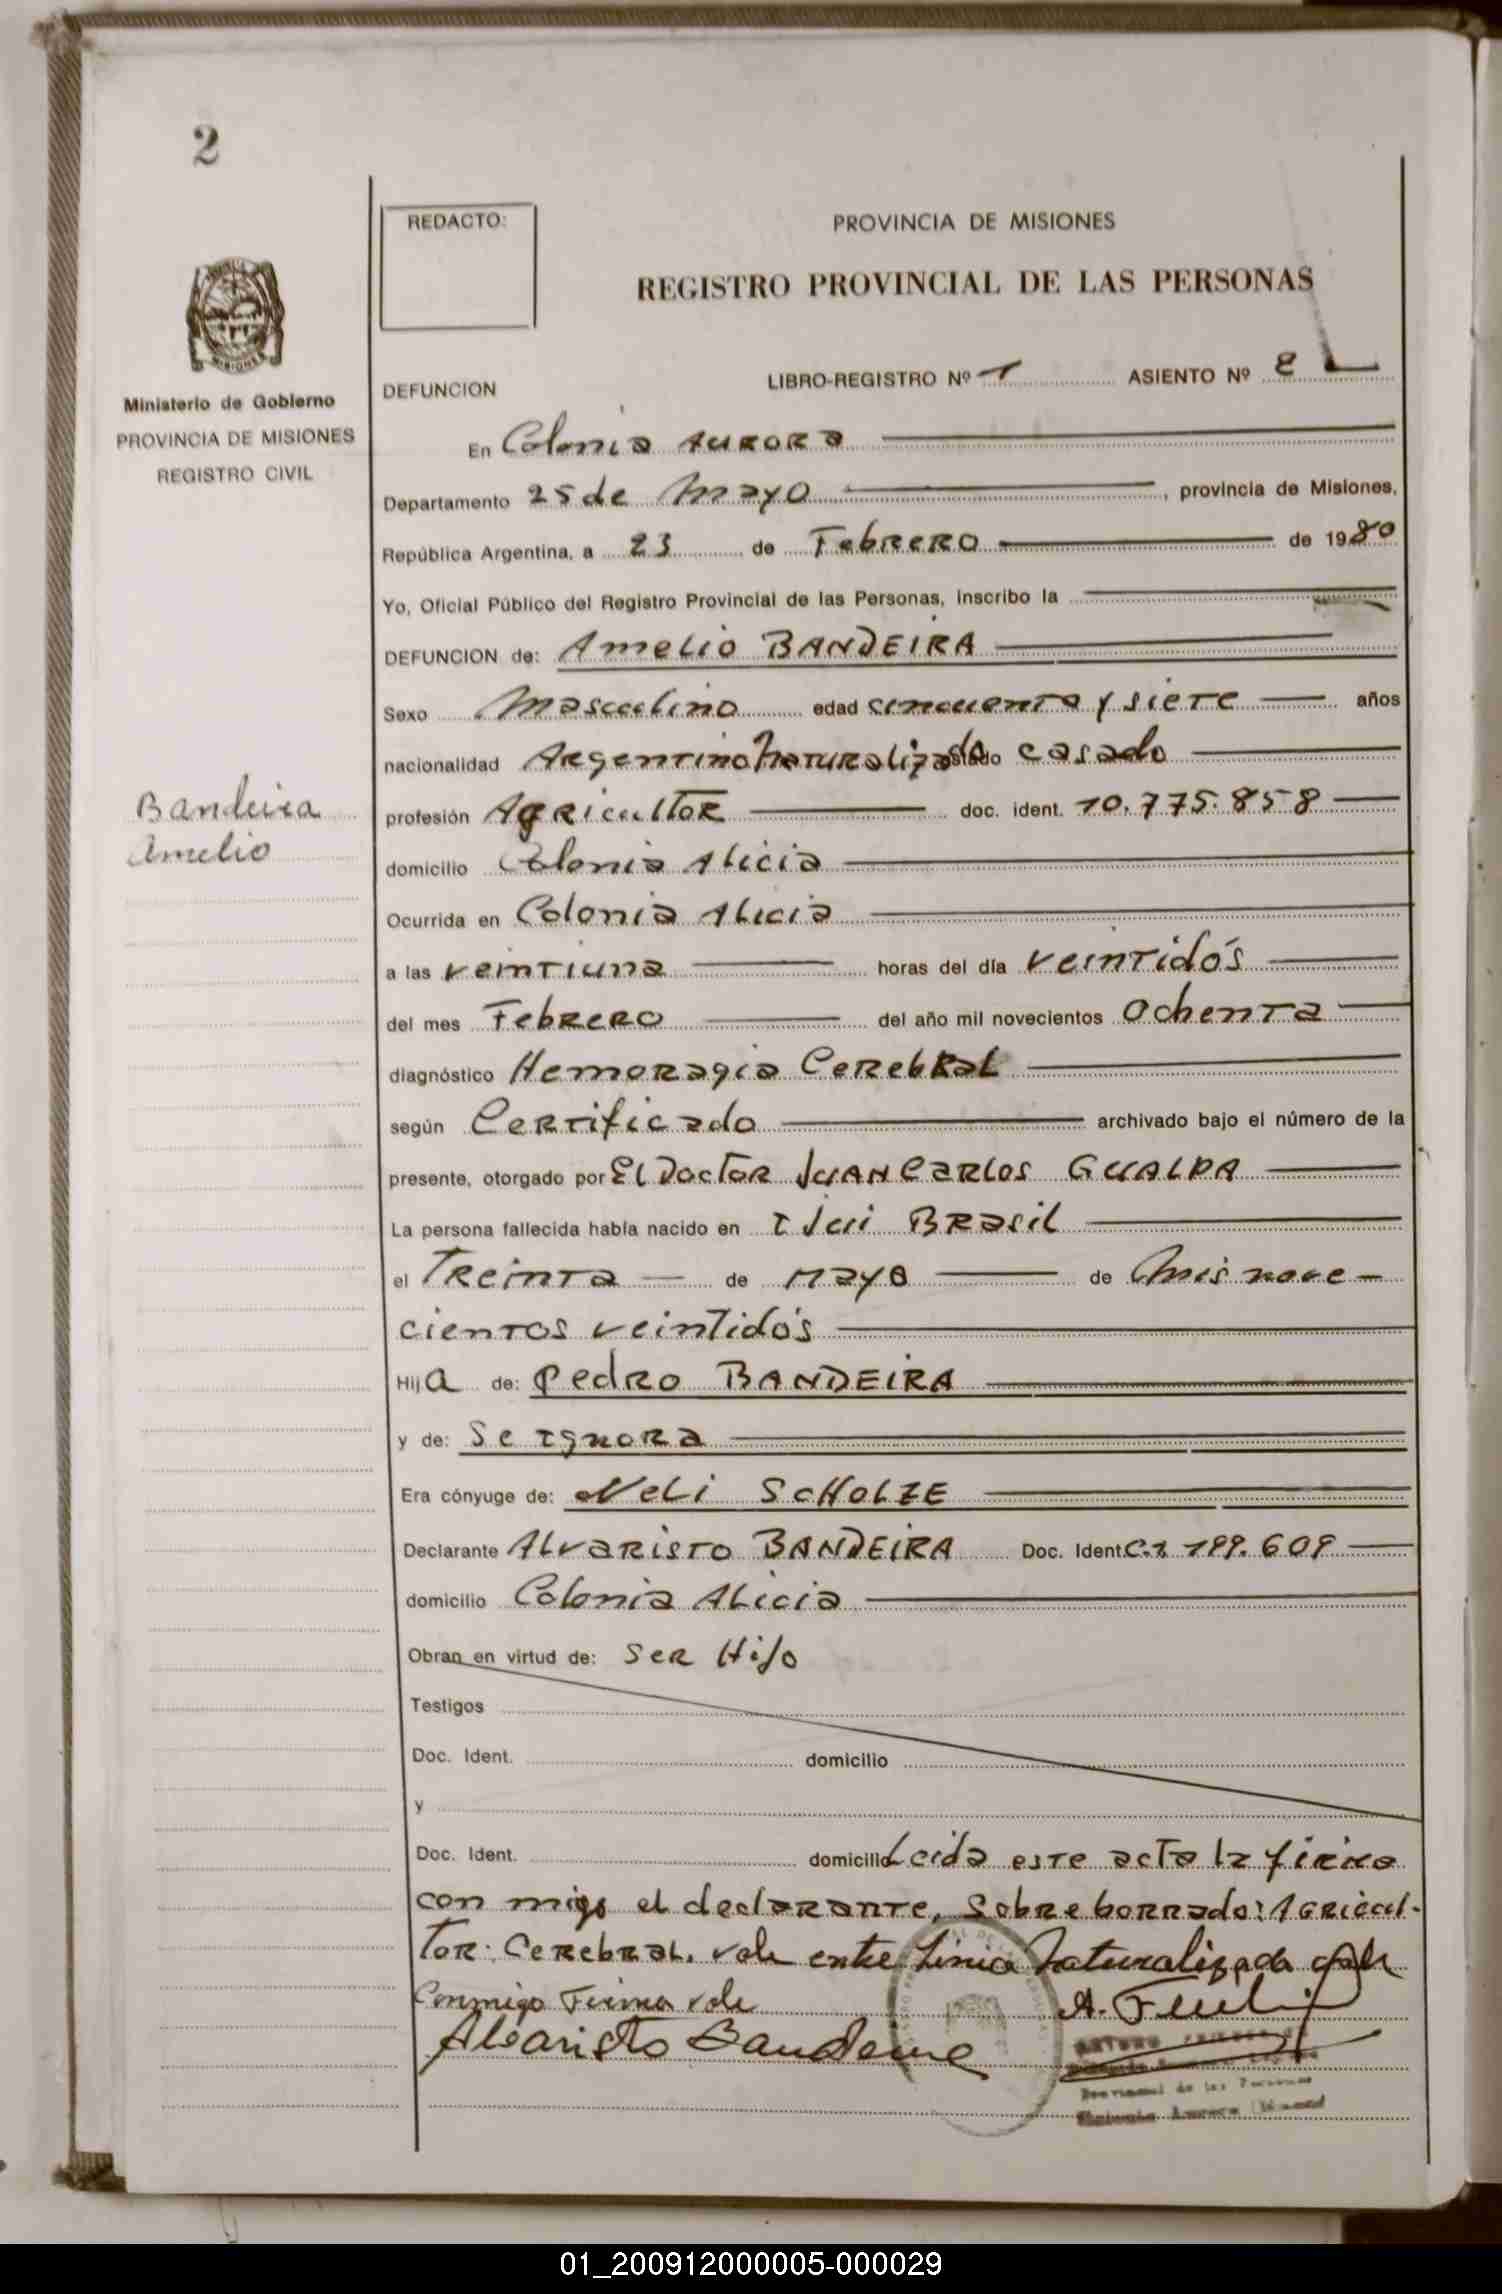 2
REDACTO:
PROVINCIA DE MISIONES
REGISTRO PROVINCIAL DE LAS PERSONAS
MISIONES
Ministerio de Gobierno
PROVINCIA DE MISIONES
REGISTRO CIVIL
DEFUNCION LIBRO-REGISTRO Nº 1 ASIENTO Nº 2
En Colonia Aurora
Departamento 25 de Mayo, provincia de Misiones,
República Argentina, a 23 de Febrero de 1980
Yo, Oficial Público del Registro Provincial de las Personas, inscribo la
DEFUNCION de: Amelio BANDEIRA
Sexo Masculino edad cincuenta y siete años
nacionalidad Argentino Naturalizado estado casado
Bandeira
Amelio
profesión Agricultor doc. ident. 10.775.858
domicilio Colonia Alicia
Ocurrida en Colonia Alicia
a las veintiuna horas del día veintidós
del mes Febrero del año mil novecientos Ochenta
diagnóstico Hemoragia Cerebral
según Certificado archivado bajo el número de la
presente, otorgado por El Doctor JUAN Carlos GUALPA
La persona fallecida había nacido en Ijui Brasil
el Treinta de mayo de mis nove-
cientos veintidós
Hija de: Pedro BANDEIRA
y de: Se ignora
Era cónyuge de: Neli SCHOLZE
Declarante Alvaristo BANDEIRA Doc. Ident. C.I. 199.609
domicilio Colonia Alicia
Obran en virtud de: Ser Hijo
Testigos
Doc. Ident. domicilio
y
Doc. Ident. domicilio Leida este acta la firma
con migo el declarante, Sobre borrado: Agricul-
tor: Cerebral. vale entre Linia Naturalizado vale
Conmigo Firma vale
Alvaristo Bandeira
Provincial de las Personas
Colonia Aurora
01_200912000005-000029